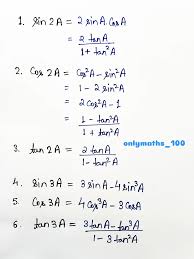 1. sin 2A = 2 sinA. CosA
= 2 tanA / 1 + tan²A
2. Cos 2A = Cos²A - sin²A
= 1 - 2 sin²A
= 2 Cos²A - 1
= 1 - tan²A / 1 + tan²A
onlymaths_100
3. tan 2A = 2 tanA / 1 - tan²A
4. Sin 3A = 3 sin A - 4 sin³A
5. Cos 3A = 4 Cos³A - 3 Cos A
6. tan 3A = 3 tanA - tan³A / 1 - 3 tan²A